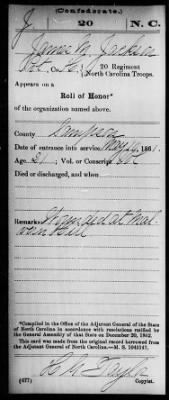 (Confederate.)
J 20 N. C.
James M. Jackson
Pvt, Co. , 20 Regiment
North Carolina Troops.
Appears on a
Roll of Honor*
of the organization named above.
County
Date of entrance into service, May 16, 1861.
Age, ; Vol. or Conscript, Vol.
Died or discharged, and when
Remarks: Wounded at Mal
vern Hill
*Compiled in the Office of the Adjutant General of the State
of North Carolina in accordance with resolutions ratified by
the General Assembly of that State on December 20, 1862.
This card was made from the original record borrowed from
the Adjutant General of North Carolina.—M. S. 1043147.
(627)
Taylor
Copyist.